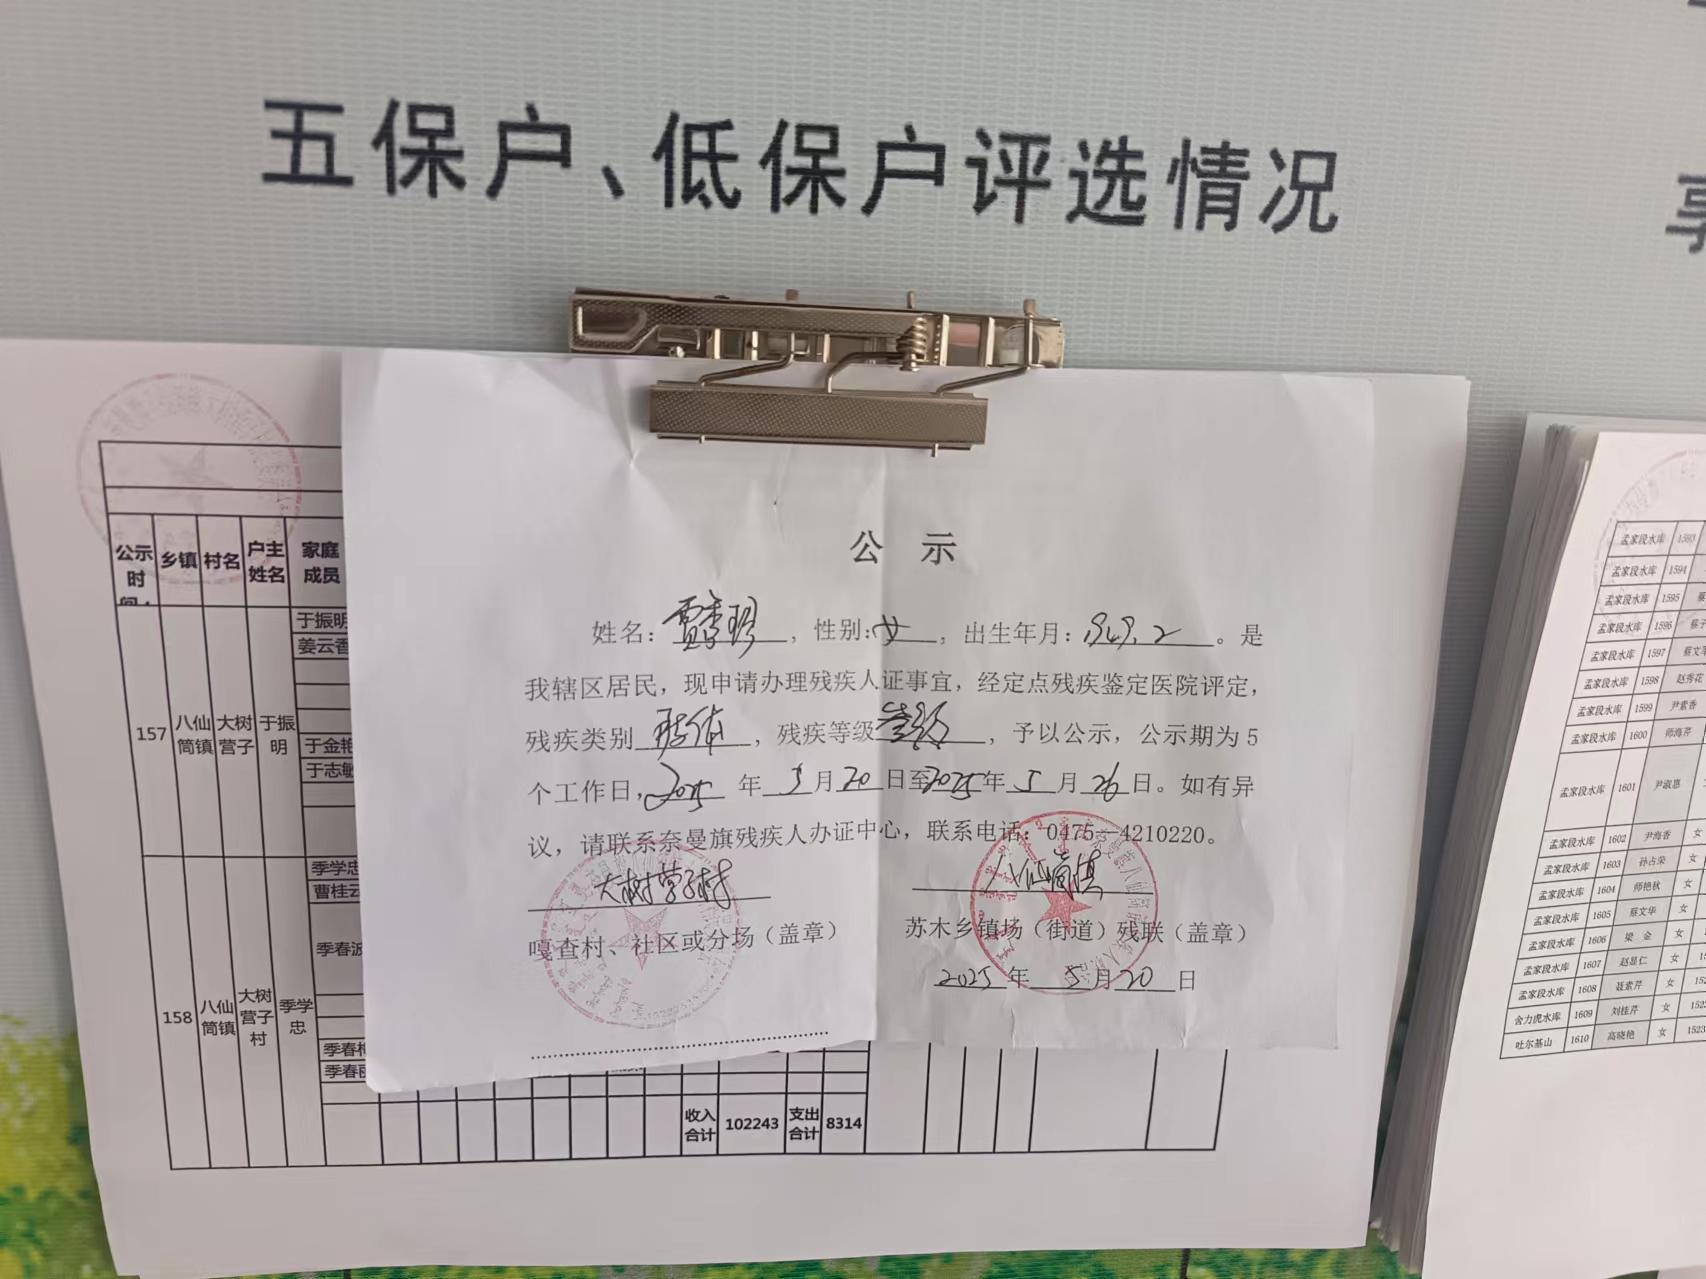 五保户、低保户评选情况
公示
姓名：贾秀珍，性别：女，出生年月：1949.2。是
我辖区居民，现申请办理残疾人证事宜，经定点残疾鉴定医院评定，
残疾类别肢体，残疾等级叁级，予以公示，公示期为5
个工作日，2025年5月20日至2025年5月26日。如有异
议，请联系奈曼旗残疾人办证中心，联系电话：0475-4210220。
大树营子村 八仙筒镇
嘎查村、社区或分场（盖章） 苏木乡镇场（街道）残联（盖章）
2025年5月20日
公示时间： 乡镇 村名 户主姓名 家庭成员
157 八仙筒镇 大树营子 于振明
于振明
姜云香
于金艳
于志敏
158 八仙筒镇 大树营子村 季学忠
季学忠
曹桂云
季春波
季春
季春
收入合计 102243 支出合计 8314
孟家段水库 1593
孟家段水库 1594
孟家段水库 1595 蔡
孟家段水库 1596 蔡子
孟家段水库 1597 蔡文
孟家段水库 1598 赵秀花
孟家段水库 1599 尹素香
孟家段水库 1600 师海芹
孟家段水库 1601 尹淑惠
孟家段水库 1602 尹海香 女
孟家段水库 1603 孙占荣 女
孟家段水库 1604 师艳秋 女
孟家段水库 1605 蔡文华 女
孟家段水库 1606 梁金 女
孟家段水库 1607 赵显仁 女
孟家段水库 1608 聂素芹 女
舍力虎水库 1609 刘桂芹 女
吐尔基山 1610 高晓艳 女